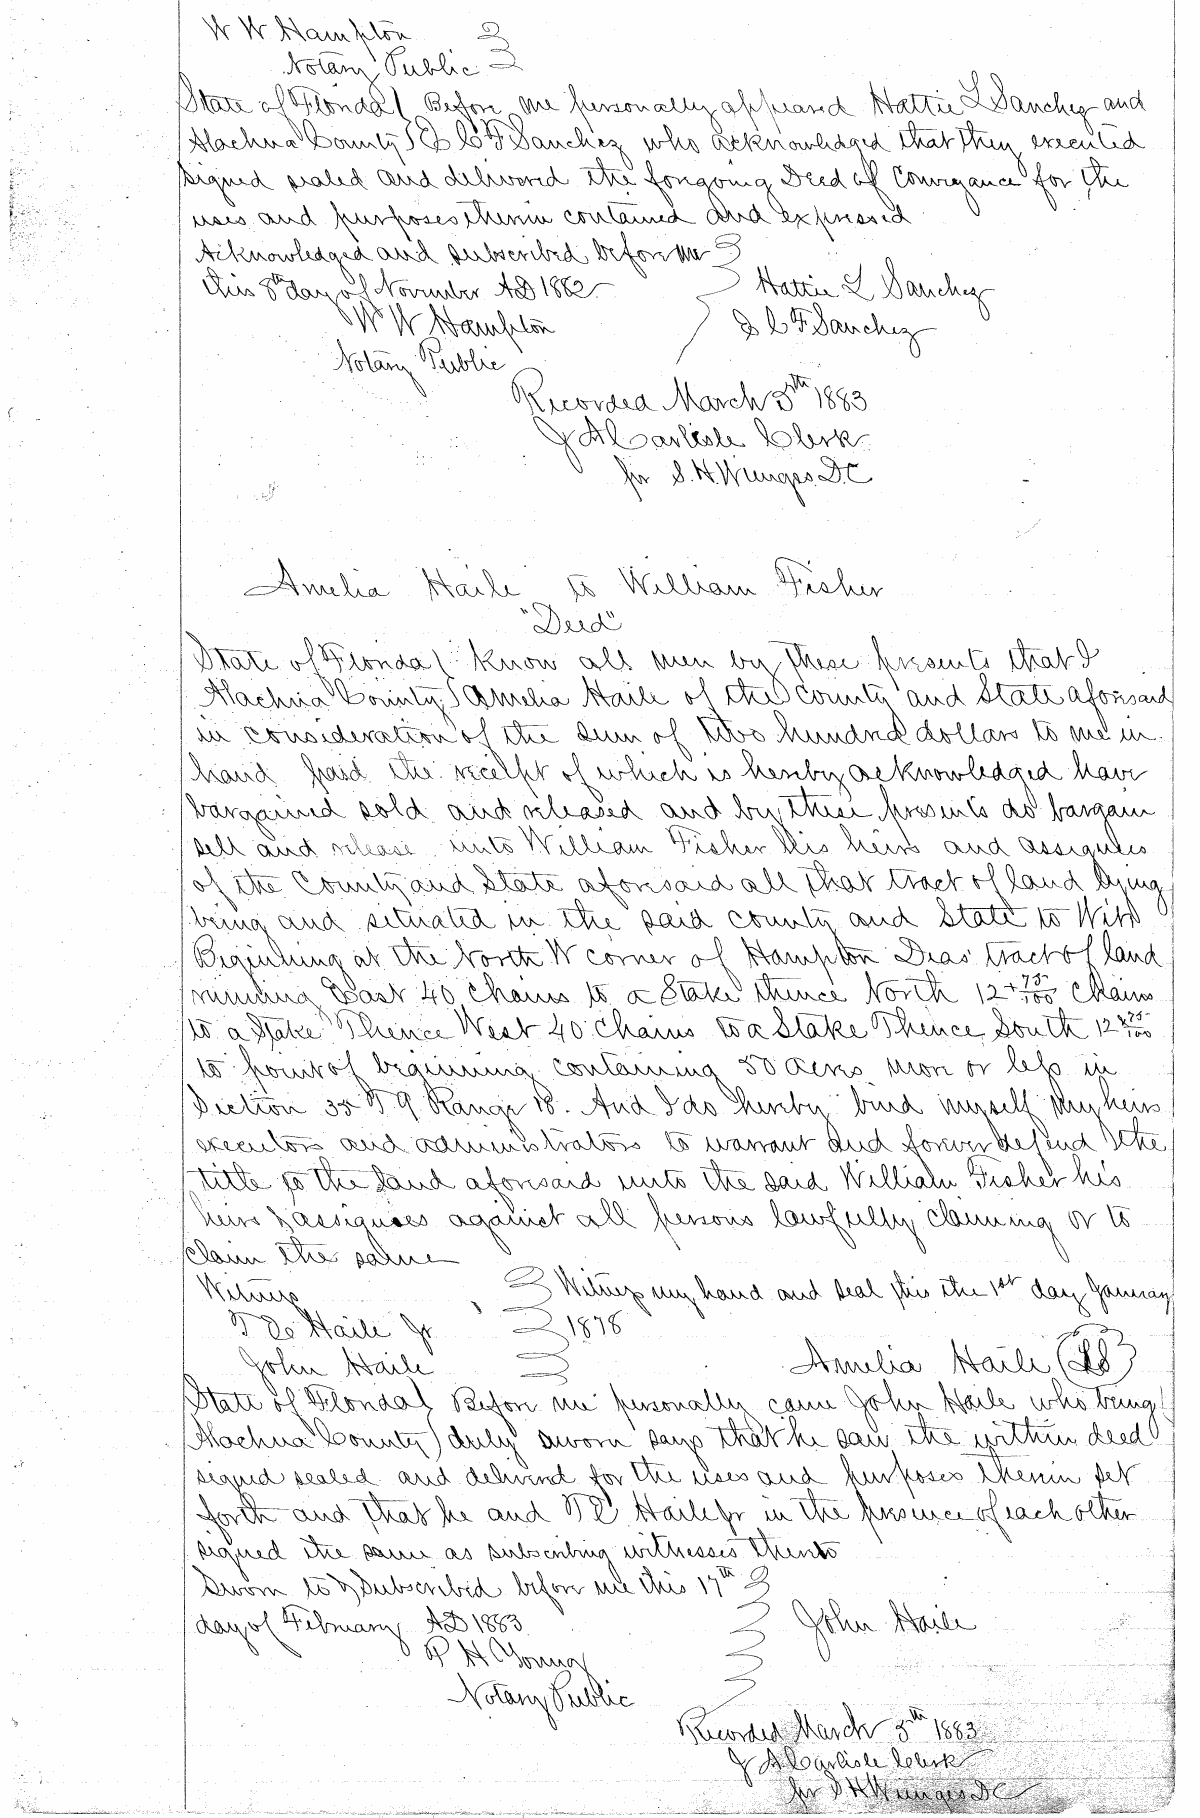 W W Hampton
Notary Public
State of Florida } Before me personally appeared Hattie L Sanchez and
Alachua County } E C F Sanchez who acknowledged that they executed
signed sealed and delivered the forgoing Deed of Conveyance for the
uses and purposes therein contained and expressed
Acknowledged and subscribed before me
this 8th day of November AD 1882
Hattie L Sanchez
W W Hampton
E C F Sanchez
Notary Public
Recorded March 5th 1883
J A Carlisle Clerk
for S. H. Wienges D.C
Amelia Haile to William Fisher
"Deed"
State of Florida } Know all men by these presents that I
Alachua County } Amelia Haile of the County and State aforesaid
in consideration of the sum of two hundred dollars to me in
hand paid the receipt of which is hereby acknowledged have
bargained sold and released and by these presents do bargain
sell and release unto William Fisher His heirs and assignees
of the County and State aforesaid all that tract of land lying
being and situated in the said county and State to Wit
Beginning at the North W corner of Hampton Deas' tract of land
running East 40 chains to a Stake thence North 12 + 75/100 chains
to a Stake Thence West 40 chains to a Stake Thence South 12 + 75/100
to point of beginning containing 50 acres more or less in
Section 35 T 9 Range 18. And I do hereby bind myself my heirs
executors and administrators to warrant and forever defend the
title to the land aforesaid unto the said William Fisher his
heirs & assignees against all persons lawfully claiming or to
claim the same
Witness
Witness my hand and seal this the 1st day January
T E Haile Jr
1878
John Haile
Amelia Haile (LS)
State of Florida } Before me personally came John Haile who being
Alachua County } duly sworn says that he saw the within deed
signed sealed and delivered for the uses and purposes therein set
forth and that he and T E Haile Jr in the presence of each other
signed the same as subscribing witnesses thereto
Sworn to & Subscribed before me this 17th
day of February AD 1883
John Haile
P H Young
Notary Public
Recorded March 5th 1883
J A Carlisle Clerk
for S H Wienges DC